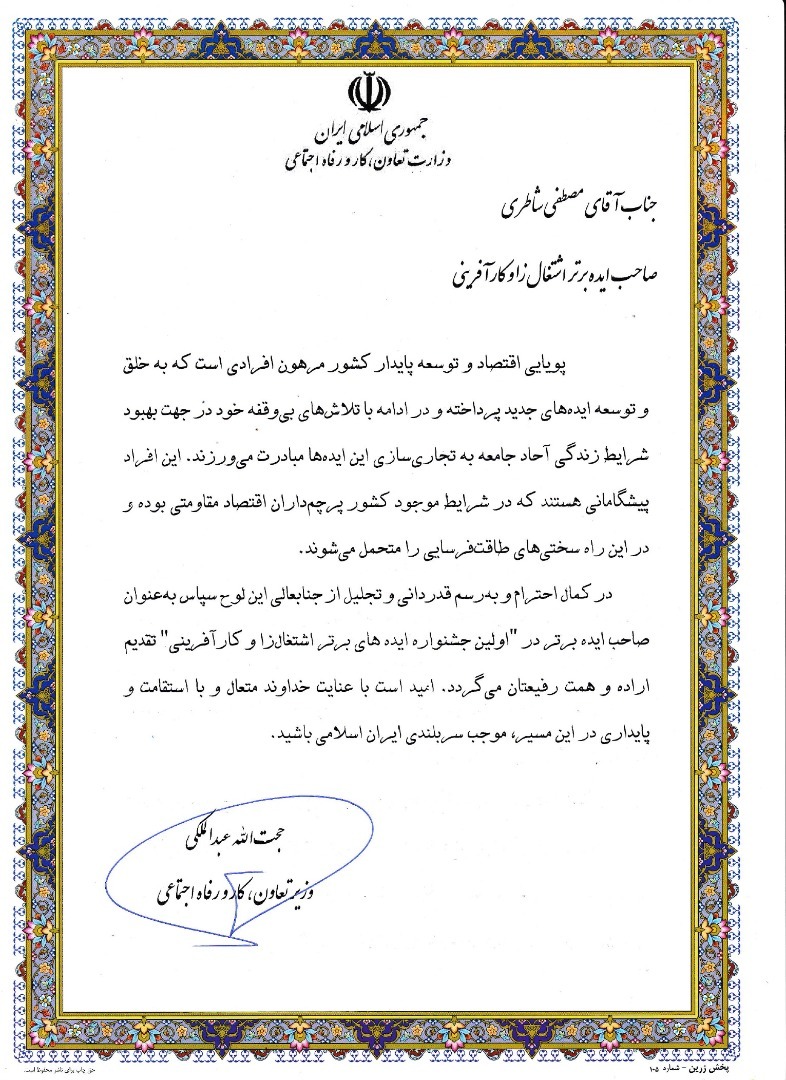 جمهوری اسلامی ایران
وزارت تعاون، کار و رفاه اجتماعی
جناب آقای مصطفی شاطری
صاحب ایده برتر اشتغال زا و کارآفرینی
پویایی اقتصاد و توسعه پایدار کشور مرهون افرادی است که به خلق
و توسعه ایده‌های جدید پرداخته و در ادامه با تلاش‌های بی‌وقفه خود در جهت بهبود
شرایط زندگی آحاد جامعه به تجاری‌سازی این ایده‌ها مبادرت می‌ورزند. این افراد
پیشگامانی هستند که در شرایط موجود کشور پرچم‌داران اقتصاد مقاومتی بوده و
در این راه سختی‌های طاقت‌فرسایی را متحمل می‌شوند.
در کمال احترام و به‌رسم قدردانی و تجلیل از جنابعالی این لوح سپاس به‌عنوان
صاحب ایده برتر در "اولین جشنواره ایده های برتر اشتغال‌زا و کارآفرینی" تقدیم
اراده و همت رفیعتان می‌گردد. امید است با عنایت خداوند متعال و با استقامت و
پایداری در این مسیر، موجب سربلندی ایران اسلامی باشید.
حجت الله عبدالملکی
وزیر تعاون، کار و رفاه اجتماعی
پخش زرین - شماره ۱۰۵
حق چاپ برای ناشر محفوظ است.